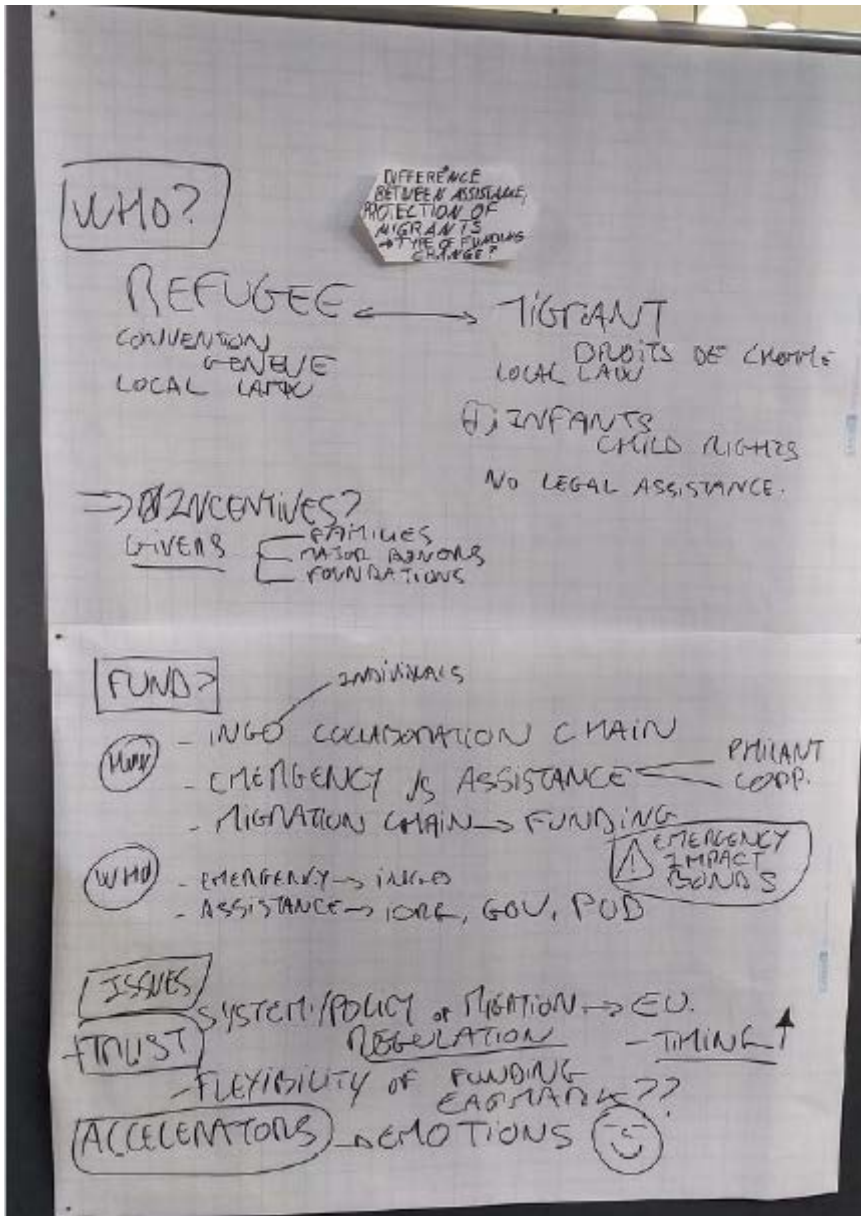 DIFFERENCE
BETWEEN ASSISTANCE,
PROTECTION OF
MIGRANTS
→ TYPE OF FUNDING
CHANGE?
WHO?
REFUGEE ↔ MIGRANT
CONVENTION
GENEVE
LOCAL LAW
DROITS DE L'HOMME
LOCAL LAW
INFANTS
CHILD RIGHTS
NO LEGAL ASSISTANCE.
⇒ INCENTIVES?
GIVERS
FAMILIES
MAJOR DONORS
FOUNDATIONS
FUND?
INDIVIDUALS
- INGO COLLABORATION CHAIN
- EMERGENCY VS ASSISTANCE
PHILANT
CORP.
- MIGRATION CHAIN → FUNDING
EMERGENCY
IMPACT
BONDS
WHO
- EMERGENCY → INGO
- ASSISTANCE → GOV,
ISSUES
SYSTEM/POLICY OF MIGATION → EU.
REGULATION
- TRUST
- TIMING ↑
- FLEXIBILITY OF FUNDING
EARMARK??
ACCELERATORS → EMOTIONS